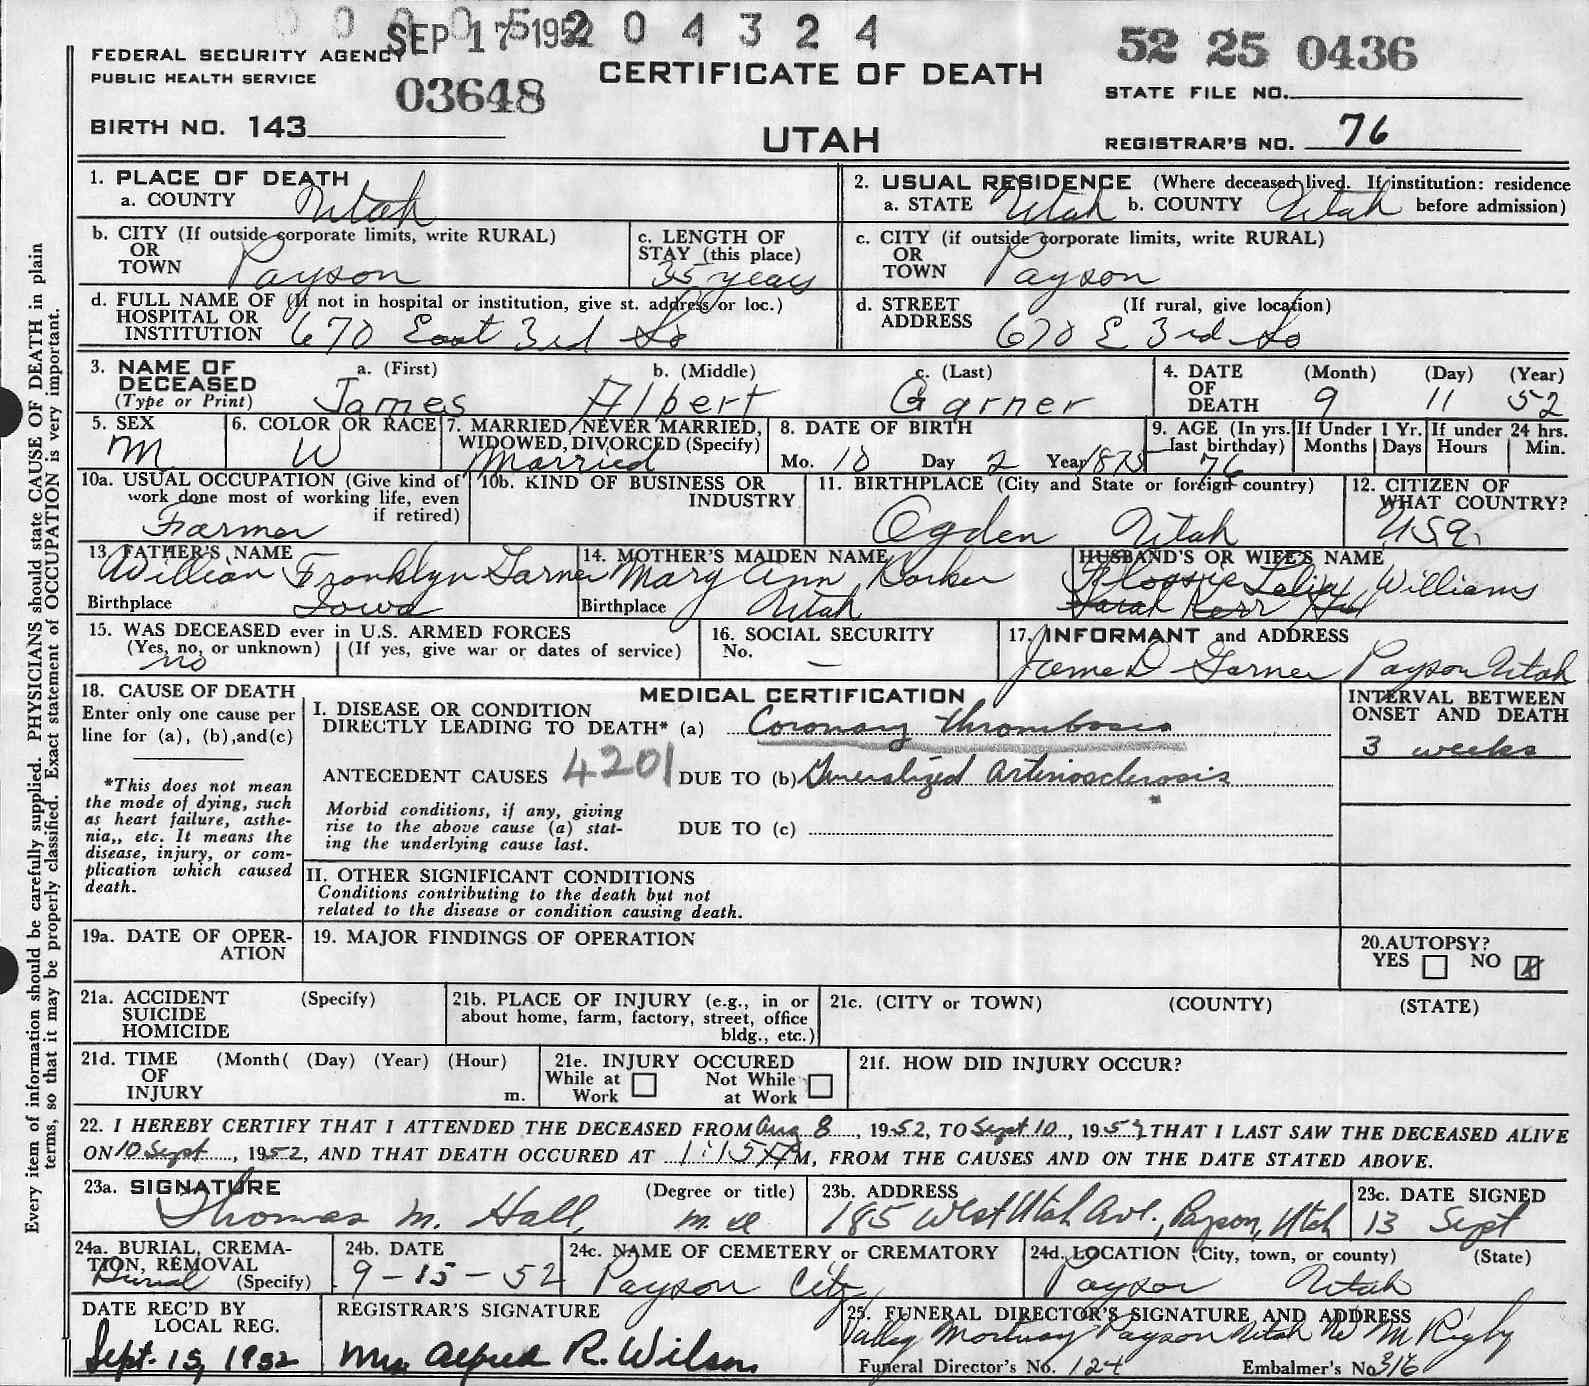 SEP 17 1952 0 4 3 2 4
FEDERAL SECURITY AGENCY
PUBLIC HEALTH SERVICE
03648
CERTIFICATE OF DEATH
52 25 0436
STATE FILE NO.
BIRTH NO. 143
UTAH
REGISTRAR'S NO. 76
Every item of information should be carefully supplied. PHYSICIANS should state CAUSE OF DEATH in plain
terms, so that it may be properly classified. Exact statement of OCCUPATION is very important.
1. PLACE OF DEATH
a. COUNTY Utah
2. USUAL RESIDENCE (Where deceased lived. If institution: residence
a. STATE Utah b. COUNTY Utah before admission)
b. CITY (If outside corporate limits, write RURAL)
OR
TOWN Payson
c. LENGTH OF
STAY (this place)
35 years
c. CITY (if outside corporate limits, write RURAL)
OR
TOWN Payson
d. FULL NAME OF (If not in hospital or institution, give st. address or loc.)
HOSPITAL OR
INSTITUTION 670 East 3rd So
d. STREET (If rural, give location)
ADDRESS 670 E 3rd So
3. NAME OF a. (First) b. (Middle) c. (Last)
DECEASED
(Type or Print) James Albert Garner
4. DATE (Month) (Day) (Year)
OF
DEATH 9 11 52
5. SEX
M
6. COLOR OR RACE
W
7. MARRIED, NEVER MARRIED,
WIDOWED, DIVORCED (Specify)
Married
8. DATE OF BIRTH
Mo. 10 Day 2 Year 1875
9. AGE (In yrs.
last birthday)
76
If Under 1 Yr.
Months Days
If under 24 hrs.
Hours Min.
10a. USUAL OCCUPATION (Give kind of
work done most of working life, even
if retired)
Farmer
10b. KIND OF BUSINESS OR
INDUSTRY
11. BIRTHPLACE (City and State or foreign country)
Ogden Utah
12. CITIZEN OF
WHAT COUNTRY?
USA.
13. FATHER'S NAME
William Franklyn Garner
Birthplace Iowa
14. MOTHER'S MAIDEN NAME
Mary Ann Barker
Birthplace Utah
HUSBAND'S OR WIFE'S NAME
Williams
Sarah Kerr
15. WAS DECEASED ever in U.S. ARMED FORCES
(Yes, no, or unknown) (If yes, give war or dates of service)
no
16. SOCIAL SECURITY
No. —
17. INFORMANT and ADDRESS
James D Garner Payson Utah
18. CAUSE OF DEATH
Enter only one cause per
line for (a), (b),and(c)
*This does not mean
the mode of dying, such
as heart failure, asthe-
nia,, etc. It means the
disease, injury, or com-
plication which caused
death.
MEDICAL CERTIFICATION
I. DISEASE OR CONDITION
DIRECTLY LEADING TO DEATH* (a) Coronary thrombosis
ANTECEDENT CAUSES 4201 DUE TO (b) Generalized arteriosclerosis
Morbid conditions, if any, giving
rise to the above cause (a) stat-
ing the underlying cause last.
DUE TO (c)
INTERVAL BETWEEN
ONSET AND DEATH
3 weeks
II. OTHER SIGNIFICANT CONDITIONS
Conditions contributing to the death but not
related to the disease or condition causing death.
19a. DATE OF OPER-
ATION
19. MAJOR FINDINGS OF OPERATION
20.AUTOPSY?
YES NO X
21a. ACCIDENT (Specify)
SUICIDE
HOMICIDE
21b. PLACE OF INJURY (e.g., in or
about home, farm, factory, street, office
bldg., etc.)
21c. (CITY or TOWN) (COUNTY) (STATE)
21d. TIME (Month( (Day) (Year) (Hour)
OF
INJURY m.
21e. INJURY OCCURED
While at Work Not While at Work
21f. HOW DID INJURY OCCUR?
22. I HEREBY CERTIFY THAT I ATTENDED THE DECEASED FROM Aug 8, 1952, TO Sept 10, 1952, THAT I LAST SAW THE DECEASED ALIVE
ON 10 Sept, 1952, AND THAT DEATH OCCURED AT 1:15 AM, FROM THE CAUSES AND ON THE DATE STATED ABOVE.
23a. SIGNATURE (Degree or title)
Thomas M. Hall, m d
23b. ADDRESS
185 West Utah Ave., Payson, Utah
23c. DATE SIGNED
13 Sept
24a. BURIAL, CREMA-
TION, REMOVAL
Burial (Specify)
24b. DATE
9-15-52
24c. NAME OF CEMETERY or CREMATORY
Payson City
24d. LOCATION (City, town, or county) (State)
Payson Utah
DATE REC'D BY
LOCAL REG.
Sept. 15, 1952
REGISTRAR'S SIGNATURE
Mrs Alfred R. Wilson
25. FUNERAL DIRECTOR'S SIGNATURE AND ADDRESS
Valley Mortuary Payson Utah W M Rigby
Funeral Director's No. 124 Embalmer's No 316